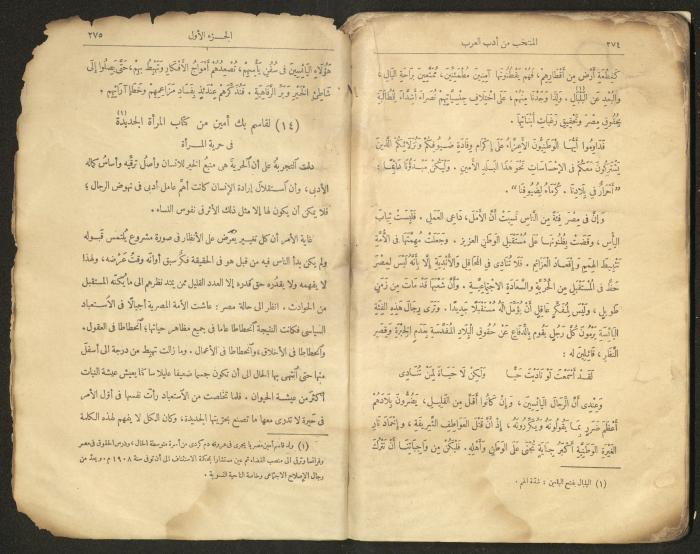 ٢٧٤ المنتخب من أدب العرب
كَقِطْعَةِ أَرْضٍ مِن أَقْطَارِهِمْ، فَهُمْ يَقْطُنُونَهَا آمِنِينَ مُطْمَئِنِّينَ، مُمَتَّعِينَ بِرَاحَةِ الْبَالِ،
وَالْبُعْدِ عَنِ الْبَلْبَالِ. وَلِذَا وَجَدْنَا مِنْهُمْ، عَلَى اخْتِلَافِ جِنْسِيَّاتِهِمْ نُصَرَاءَ أَشِدَّاءَ لِلْمُطَالَبَةِ
بِحُقُوقِ مِصْرَ وَتَحْقِيقِ رَغَبَاتِ أَبْنَائِهَا.
فَدَاوِمُوا أَيُّهَا الْوَطَنِيُّونَ الْأَعِزَّاءُ عَلَى إِكْرَامِ وِفَادَةِ ضُيُوفِكُمْ وَنُزَلَائِكُمُ الَّذِينَ
يَشْتَرِكُونَ مَعَكُمْ فِي الْإِحْسَاسَاتِ نَحْوَ هٰذَا الْبَلَدِ الْأَمِينِ. وَلْيَكُنْ مَبْدَؤُنَا دَائِمًا:
"أَحْرَارٌ فِي بِلَادِنَا. كُرَمَاءُ لِضُيُوفِنَا".
وَإِنَّ فِي مِصْرَ فِئَةً مِنَ النَّاسِ نَسِيَتْ أَنَّ الْأَمَلَ، دَاعِي الْعَمَلِ. فَلَبِسَتْ ثِيَابَ
الْيَأْسِ، وَقَضَتْ بِظُنُونِهَا عَلَى مُسْتَقْبَلِ الْوَطَنِ الْعَزِيزِ. وَجَعَلَتْ مُهِمَّتَهَا فِي الْأُمَّةِ
تَثْبِيطَ الْهِمَمِ وَإِقْعَادَ الْعَزَائِمِ. فَلَا تُنَادِي فِي الْمَحَافِلِ وَالْأَنْدِيَةِ إِلَّا بِأَنَّهُ لَيْسَ لِمِصْرَ
حَظٌّ فِي الْمُسْتَقْبَلِ مِنَ الْحُرِّيَّةِ وَالسَّعَادَةِ الاجْتِمَاعِيَّةِ. وَأَنَّ شَعْبَهَا قَدْ مَاتَ مِنْ زَمَنٍ
طَوِيلٍ، وَلَيْسَ لِمُفَكِّرٍ عَاقِلٍ أَنْ يُؤَمِّلَ لَهُ مُسْتَقْبَلًا جَدِيدًا. وَتَرَى رِجَالَ هٰذِهِ الْفِئَةِ
الْيَائِسَةِ يَرْمُونَ كُلَّ رَجُلٍ يَقُومُ بِالدِّفَاعِ عَنْ حُقُوقِ الْبِلَادِ الْمُقَدَّسَةِ بِعَدَمِ الْخِبْرَةِ وَقِصَرِ
النَّظَرِ، قَائِلِينَ لَهُ:
لَقَدْ أَسْمَعْتَ لَوْ نَادَيْتَ حَيًّا وَلٰكِنْ لَا حَيَاةَ لِمَنْ تُنَادِي
وَعِنْدِي أَنَّ الرِّجَالَ الْيَائِسِينَ، وَإِنْ كَانُوا أَقَلَّ مِنَ الْقَلِيلِ، يَضُرُّونَ بِلَادَهُمْ
أَعْظَمَ ضَرَرٍ بِمَا يَقُولُونَهُ وَيُكَرِّرُونَهُ، إِذْ أَنَّ قَتْلَ الْعَوَاطِفِ الشَّرِيفَةِ، وَإِخْمَادَ نَارِ
الْغَيْرَةِ الْوَطَنِيَّةِ أَكْبَرُ جِنَايَةٍ تُجْنَى عَلَى الْوَطَنِ وَأَهْلِهِ. فَلْيَكُنْ مِنْ وَاجِبَاتِنَا أَنْ نَتْرُكَ
(١) البلبال بفتح الباءين: شدة الهم.
الجزء الأول ٢٧٥
هَؤُلَاءِ الْيَائِسِينَ فِي سُفُنِ يَأْسِهِمْ، تُصْعِدُهُمْ أَمْوَاجُ الْأَفْكَارِ وَتَهْبِطُ بِهِمْ، حَتَّى يَصِلُوا إِلَى
شَاطِئِ الْخَيْرِ وَبَرِّ الرَّفَاهِيَةِ. فَنُذَكِّرَهُمْ عِنْدَئِذٍ بِفَسَادِ مَزَاعِمِهِمْ وَخَطَإِ آرَائِهِمْ.
(١٤) لقاسم بك أمين من كتاب المرأة الجديدة (١)
فى حرية المرأة
دلت التجربة على أن الحرية هى منبع الخير للإنسان وأصل ترقيه وأساس كماله
الأدبى، وأن استقلال إرادة الإنسان كانت أهم عامل أدبى فى نهوض الرجال؛
فلا يمكن أن يكون لها إلا مثل ذلك الأثر فى نفوس النساء.
غاية الأمر أن كل تغيير يعرض على الأنظار فى صورة مشروع يلتمس قبوله
ولم يكن بدأ الناس فيه من قبل هو فى الحقيقة فكر سبق أوانه وقت عرضه، ولهذا
لا يفهمه ولا يقدره حق قدره إلا العدد القليل ممن يمتد نظرهم الى ما يكنه المستقبل
من الحوادث. انظر الى حالة مصر: عاشت الأمة المصرية أجيالا فى الاستعباد
السياسى فكانت النتيجة انحطاطا عاما فى جميع مظاهر حياتها؛ انحطاطا فى العقول،
وانحطاطا فى الأخلاق، وانحطاطا فى الأعمال. وما زالت تهبط من درجة الى أسفل
منها حتى انتهى بها الحال الى أن تكون جسما ضعيفا عليلا ساكنا يعيش عيشة النبات
أكثر من عيشة الحيوان. فلما تخلصت من الاستعباد رأت نفسها فى أول الأمر
فى حيرة لا تدرى معها ما تصنع بحريتها الجديدة، وكان الكل لا يفهم لهذه الكلمة
(١) ولد قاسم أمين مصريا يجرى فى عروقه دم كردى من أسرة متوسطة الحال، ودرس الحقوق فى مصر
وفرانسا وترقى الى منصب القضاء ثم عين مستشارا بمحكمة الاستئناف الى أن توفى سنة ١٩٠٨ م. ويعدّ من
رجال الإصلاح الاجتماعى وخاصة الناحية النسوية.